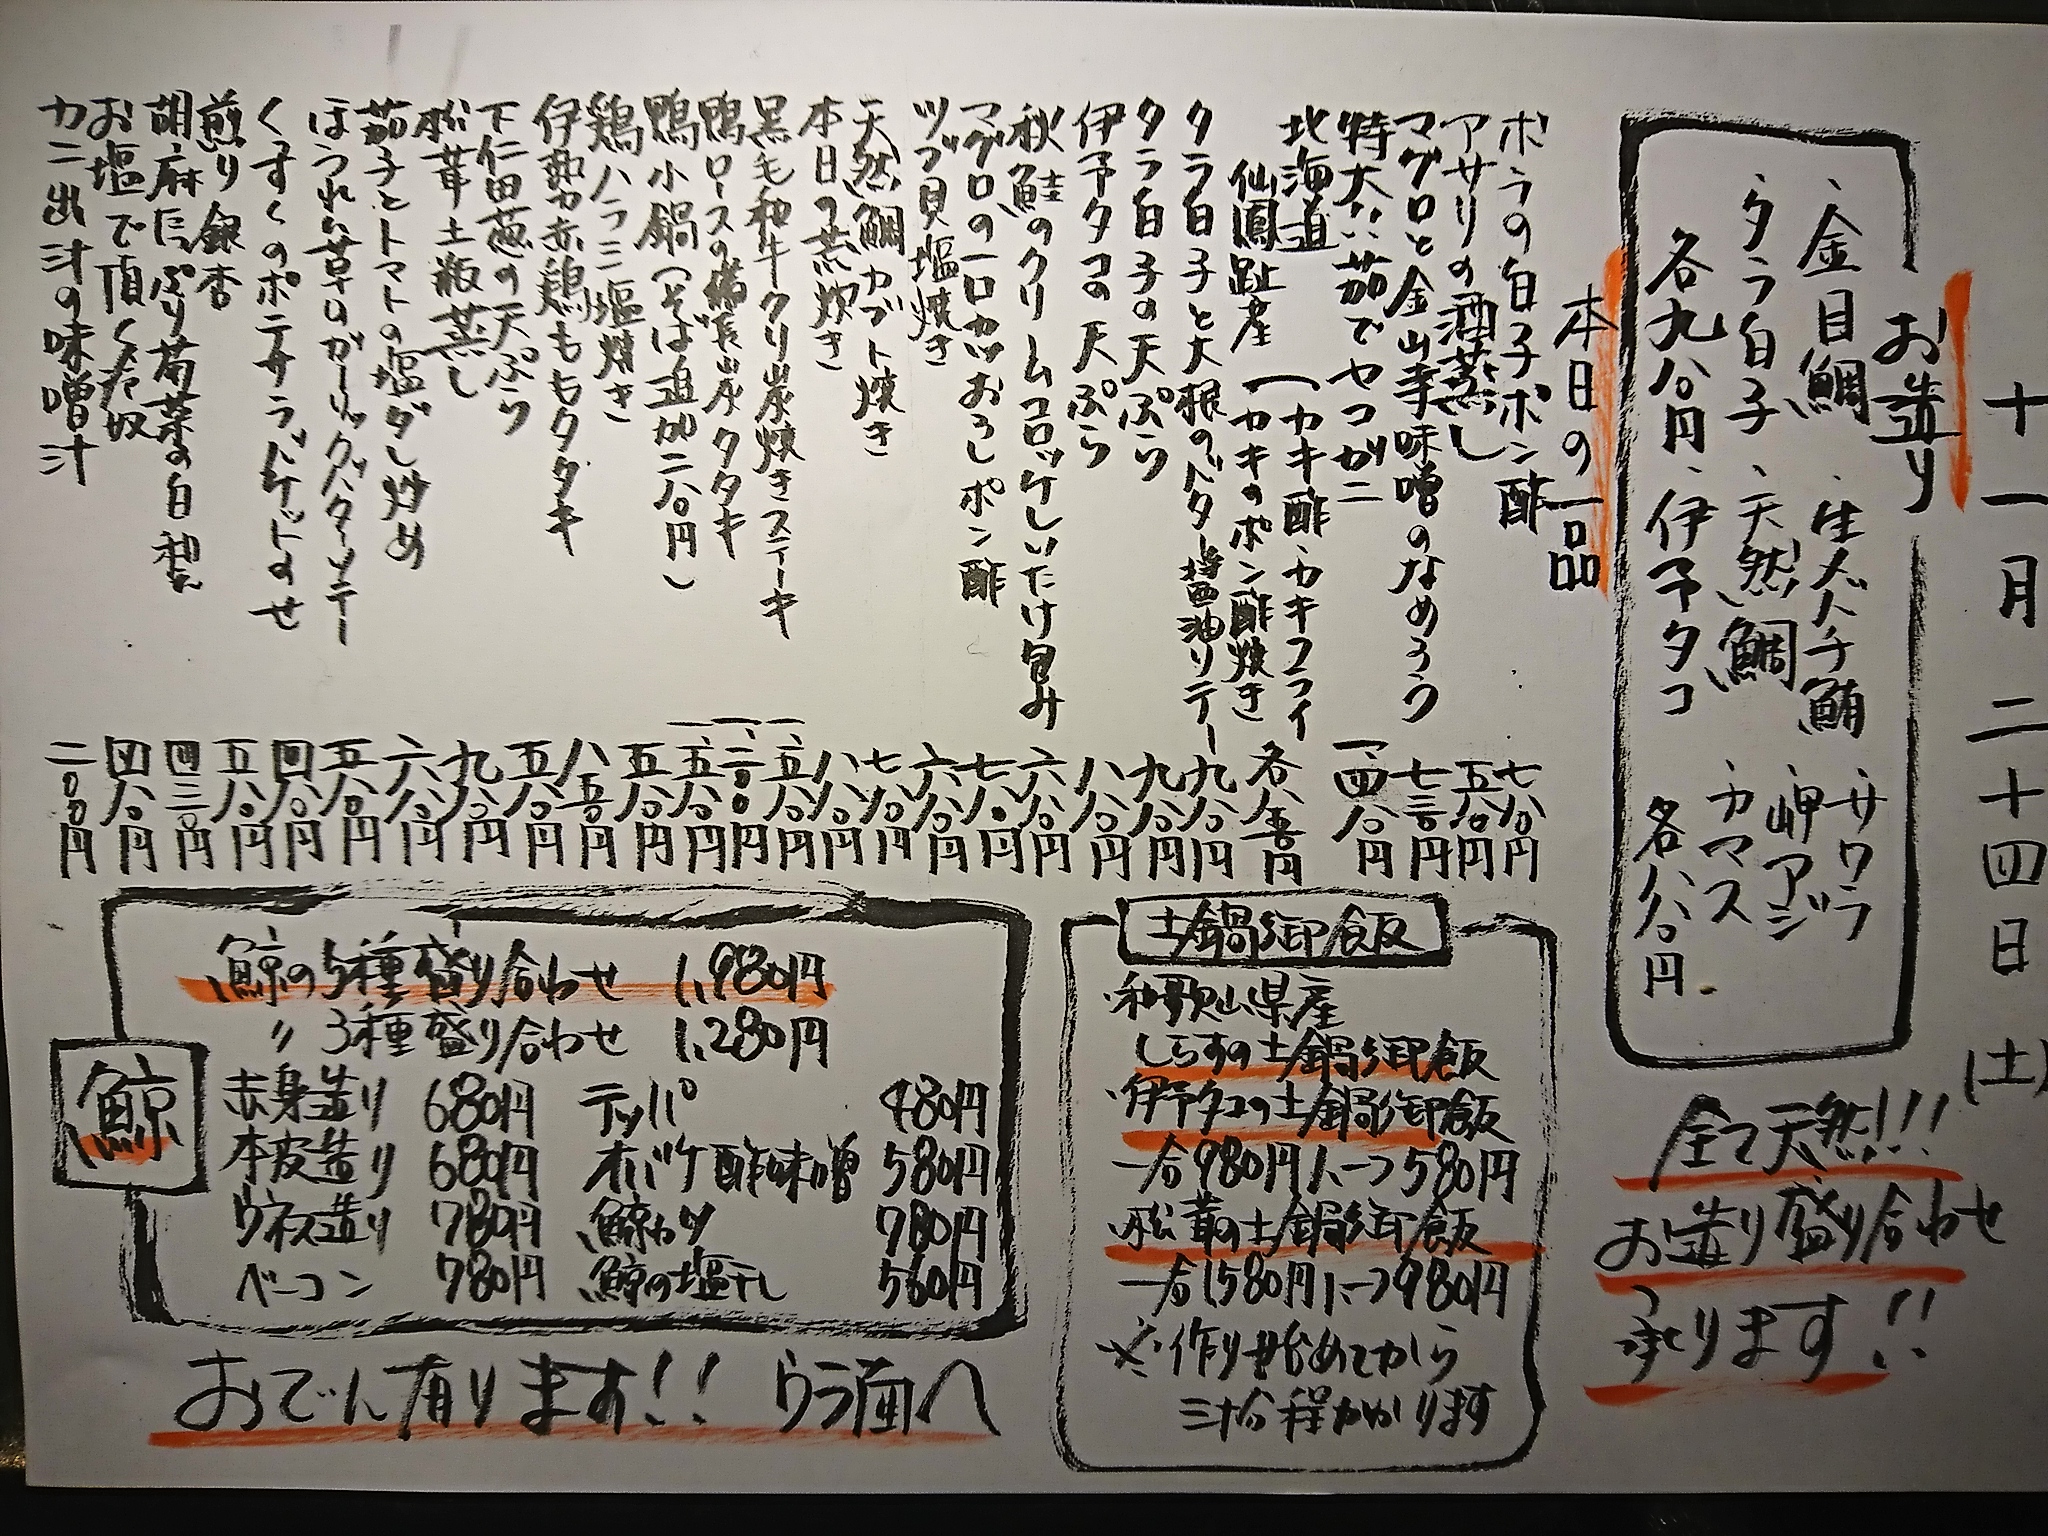 十一月二十四日(土)
お造り
・金目鯛 ・生メバチ鮪 ・サワラ
・タラ白子 ・天然鯛 ・岬アジ
・カマス
各九八〇円 ・伊予タコ 各八八〇円
全て天然!!!
お造り盛り合わせ
承ります!!
本日の一品
ボラの白子ポン酢 七八〇円
アサリの酒蒸し 五八〇円
マグロと金山寺味噌のなめろう 七三〇円
特大!!茹でヤコガニ 一、四八〇円
北海道 (カキ酢・カキフライ
仙鳳趾産 (カキのポン酢焼き 各八五〇円
タラ白子と大根のバター醤油ソテー 九八〇円
タラ白子の天ぷら 九八〇円
伊予タコの天ぷら 八八〇円
秋鮭のクリームコロッケしいたけ包み 六八〇円
マグロの一口カツおろしポン酢 七八〇円
ツブ貝塩焼き 六八〇円
天然鯛カブト焼き 七八〇円
本日の煮炊き 八八〇円
黒毛和牛クリ炭焼きステーキ 一、五八〇円
鴨ロースの備長炭タタキ 一、二〇〇円
鴨小鍋(そば追加二八〇円) 一、五八〇円
鶏ハラミ塩焼き 五八〇円
伊勢力赤鶏ももタタキ 八五〇円
下仁田葱の天ぷら 五八〇円
松茸土瓶蒸し 九八〇円
茄子とトマトの塩ダレ炒め 六八〇円
ほうれん草のガーリックバターソテー 五八〇円
くんすくのポテサラバゲットのせ 四八〇円
煎り銀杏 五八〇円
胡麻たっぷり菊菜の白和え 四三〇円
お塩で頂く冷奴 四八〇円
カニ出汁の味噌汁 二〇〇円
土鍋御飯
・和歌山県産
しらすの土鍋御飯
・伊予タコの土鍋御飯
一合980円ハーフ580円
・松茸の土鍋御飯
一合1580円ハーフ980円
※作り始めてから
三十分程かかります
鯨
鯨の5種盛り合わせ 1,980円
〃 3種盛り合わせ 1,280円
赤身造り 680円 テッパ 480円
本皮造り 680円 オバケ酢味噌 580円
ウネス造り 780円 鯨カツ 780円
ベーコン 780円 鯨の塩干し 560円
おでん有ります!! ウラ面へ